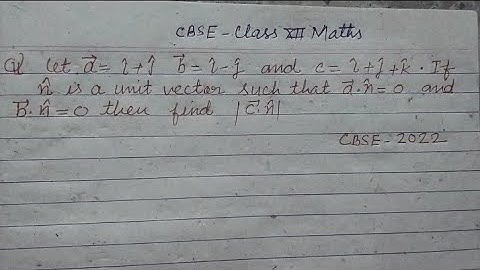 CBSE - Class XII Maths
Q) Let a⃗ = î + ĵ b⃗ = î - ĵ and c = î + ĵ + k̂ . If
n̂ is a unit vector such that a⃗ . n̂ = 0 and
b⃗ . n̂ = 0 then find |c⃗ . n̂|
CBSE - 2022